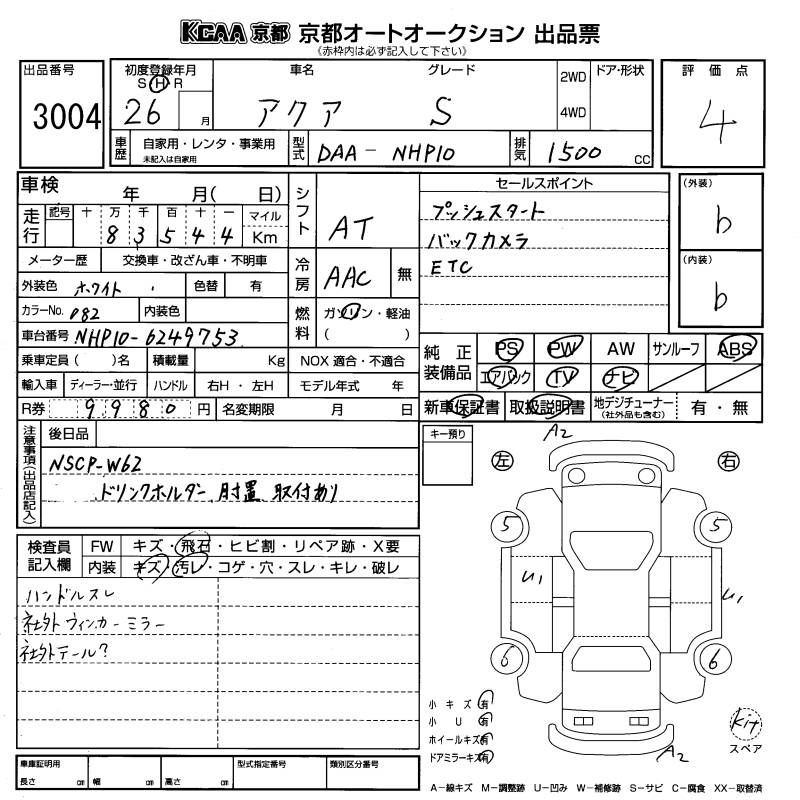 KCAA 京都 京都オートオークション 出品票
(赤枠内は必ず記入して下さい)
出品番号
3004
初度登録年月
S H R
26 月
車名
アクア
グレード
S
2WD
4WD
ドア・形状
評価点
4
車歴 自家用・レンタ・事業用
未記入は自家用
型式 DAA-NHP10
排気 1500 CC
車検 年 月( 日)
走行 記号 十 万 千 百 十 一 マイル
8 3 5 4 4 Km
メーター歴 交換車・改ざん車・不明車
外装色 ホワイト 色替 有
カラーNo. 082 内装色
車台番号 NHP10-6249753
乗車定員 ( )名 積載量 Kg
輸入車 ディーラー・並行 ハンドル 右H・左H
R券 9980 円 名変期限 月 日
シフト AT
冷房 AAC 無
燃料 ガソリン・軽油
( )
NOX 適合・不適合
モデル年式 年
セールスポイント
プッシュスタート
バックカメラ
ETC
(外装)
b
(内装)
b
純正装備品 PS PW AW サンルーフ ABS
エアバック TV ナビ
新車保証書 取扱説明書 地デジチューナー(社外品も含む) 有・無
注意事項(出品店記入)
後日品
NSCP-W62
ドリンクホルダー 肘置 取付あり
キー預り
検査員記入欄
FW キズ・飛石・ヒビ割・リペア跡・X要
内装 キズ・汚レ・コゲ・穴・スレ・キレ・破レ
ハンドルスレ
社外ウィンカーミラー
社外テール?
A2
左 右
5 5
U1 U1
6 6
A2
小キズ 有
小U 有
ホイールキズ 有
ドアミラーキズ 有
kit
スペア
車庫証明用 型式指定番号 類別区分番号
長さ cm 幅 cm 高さ cm
A-線キズ M-調整跡 U-凹み W-補修跡 S-サビ C-腐食 XX-取替済